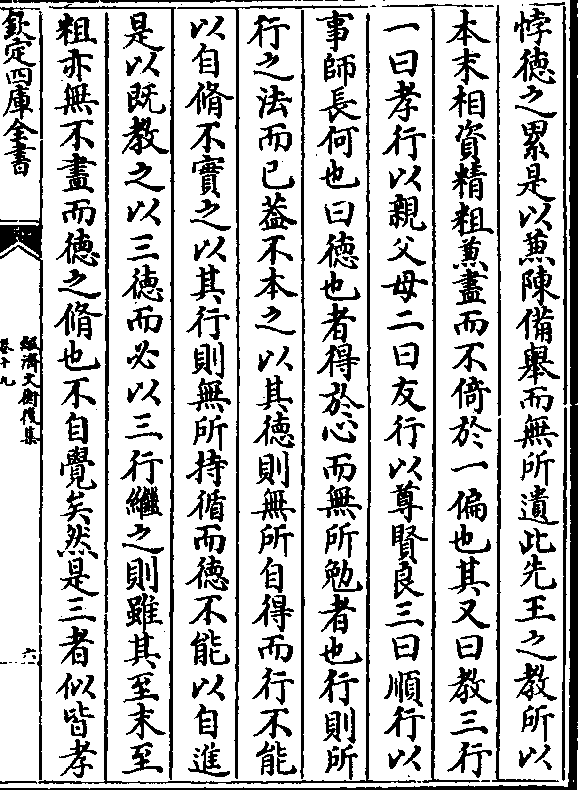 悖徳之累是以蒹陳備舉而無所遺此先王之教所以
本末相資精粗蒹盡而不倚於一偏也其又曰教三行
一曰孝行以親父母二曰友行以尊賢良三曰順行以
事師長何也曰徳也者得於心而無所勉者也行則所
行之法而已葢不本之以其徳則無所自得而行不能
以自脩不實之以其行則無所持循而徳不能以自進
是以既教之以三徳而必以三行繼之則雖其至末至
粗亦無不盡而徳之脩也不自覺矣然是三者似皆孝
欽定四庫全書
經濟文衡後集
卷十九
六